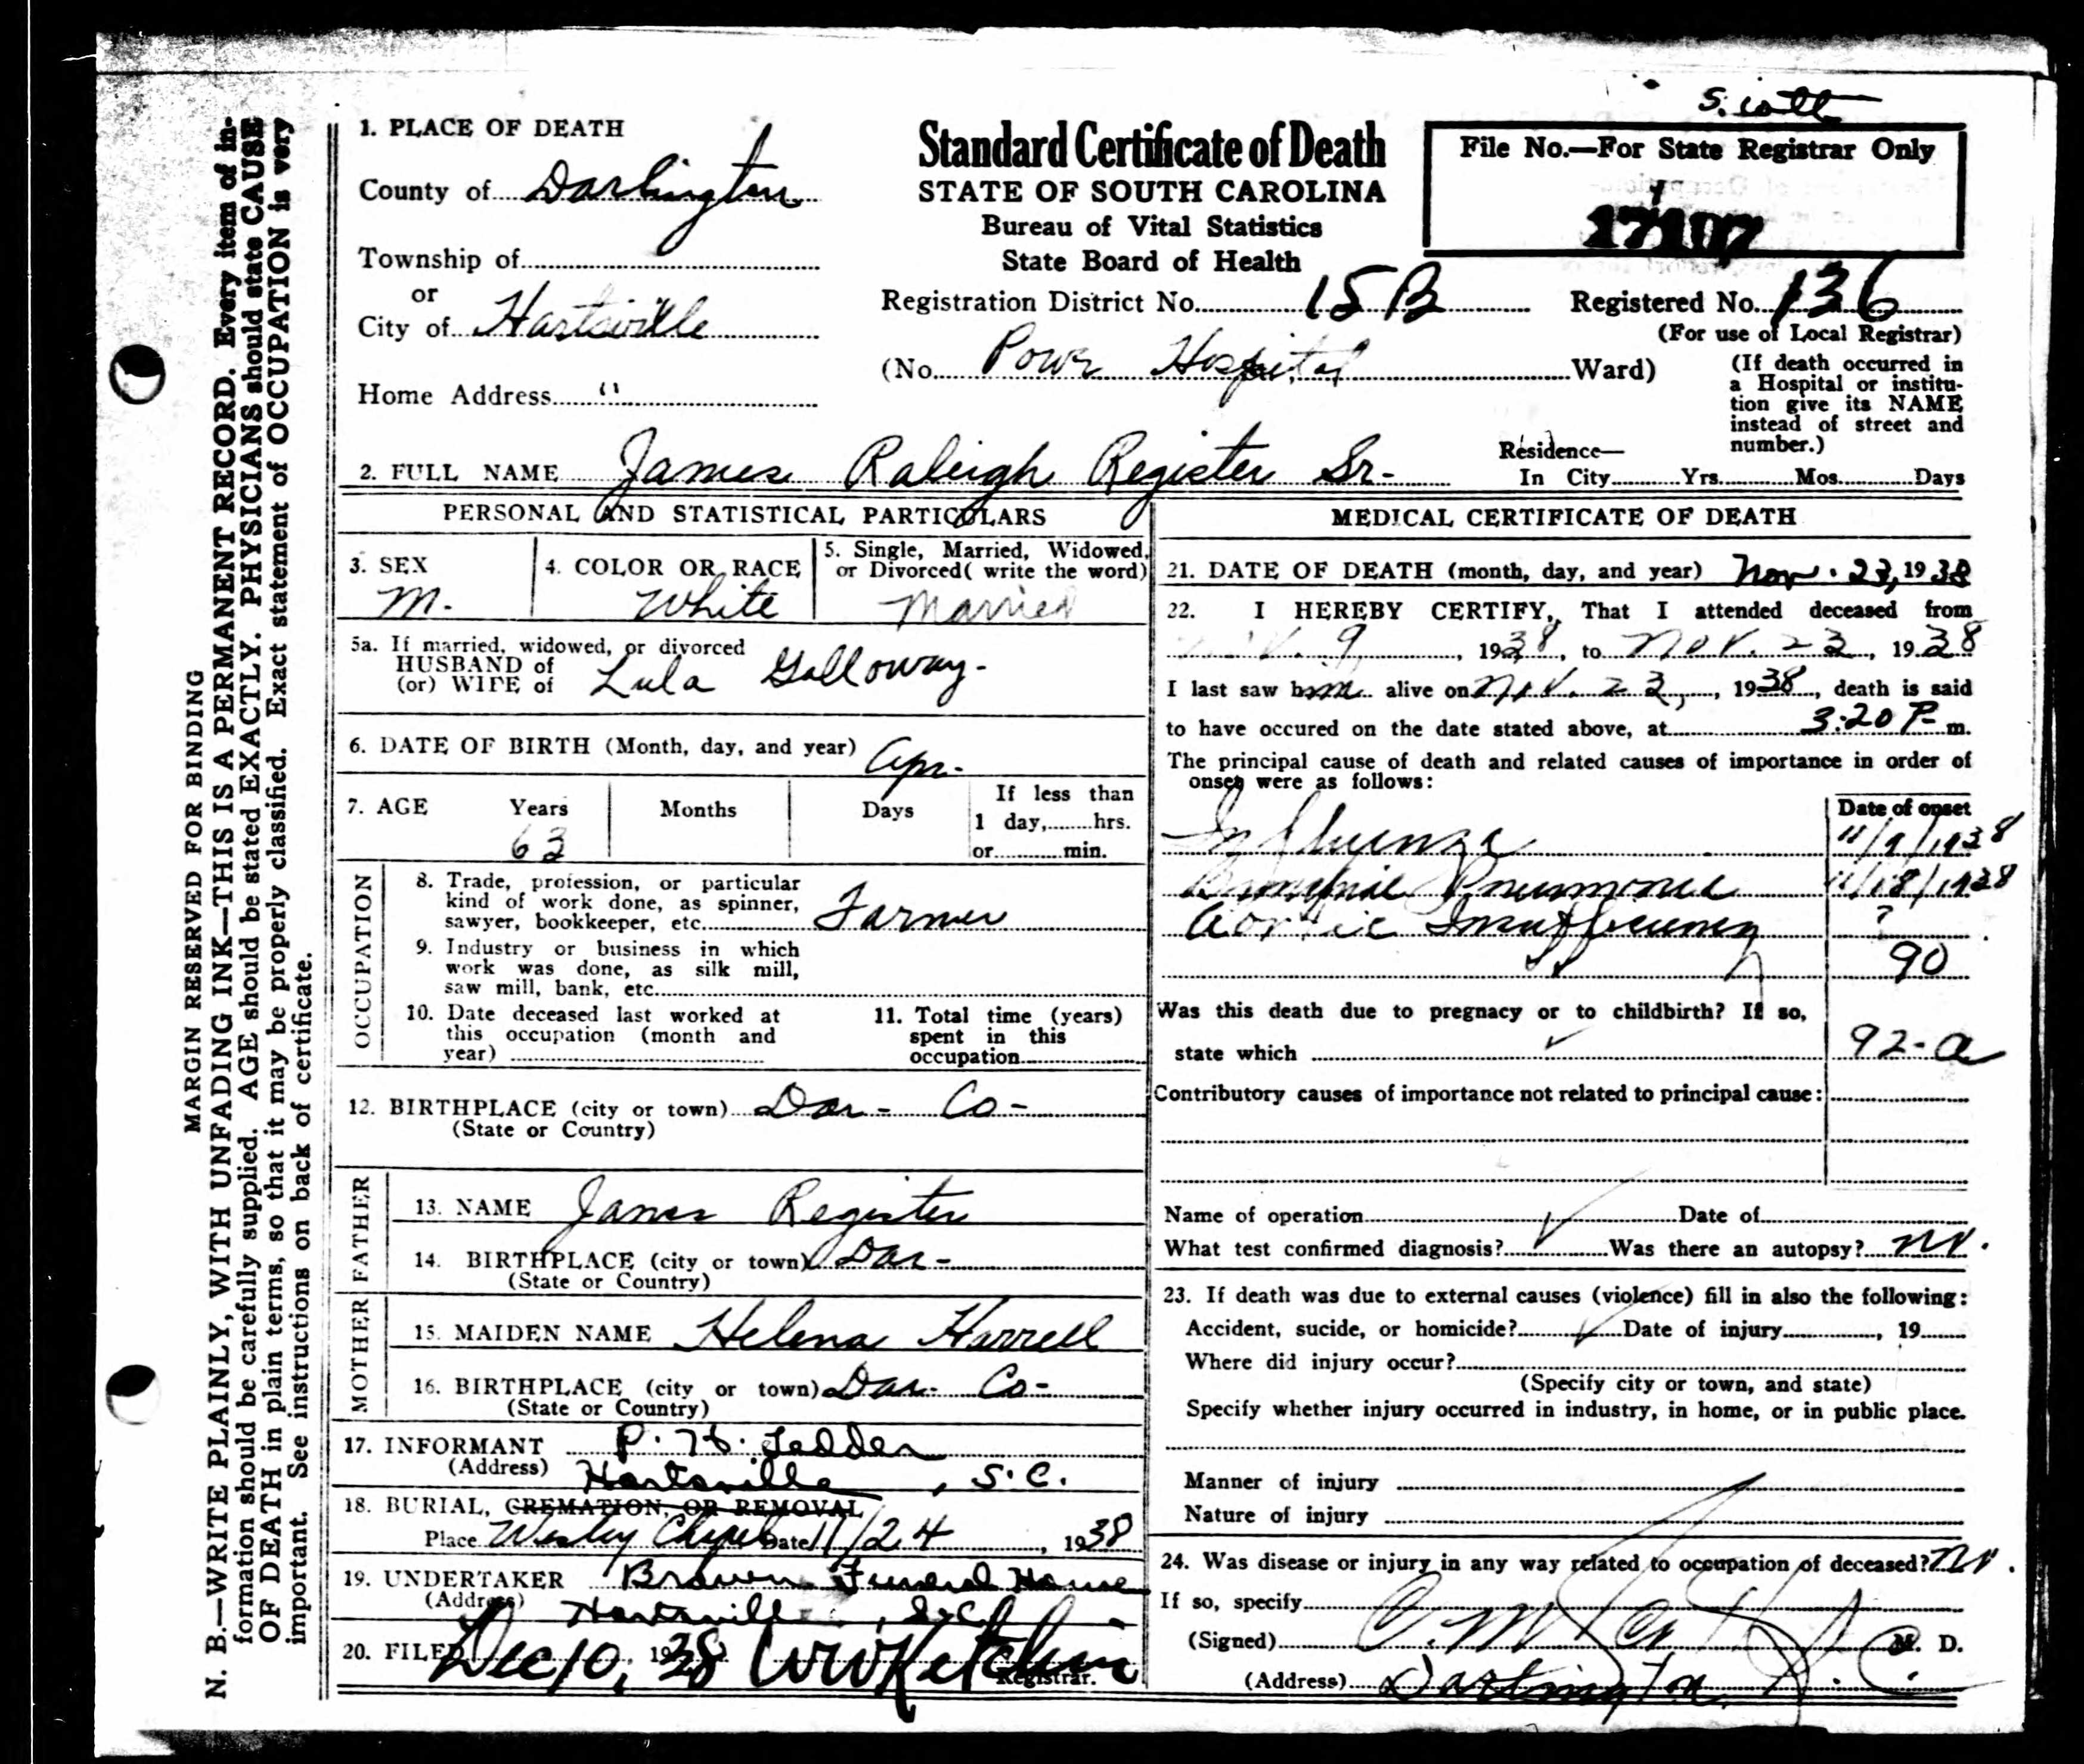 S. Cott
1. PLACE OF DEATH
County of Darlington
Township of
or
City of Hartsville
Home Address "
Standard Certificate of Death
STATE OF SOUTH CAROLINA
Bureau of Vital Statistics
State Board of Health
File No.—For State Registrar Only
17107
Registration District No. 15B
Registered No. 136
(For use of Local Registrar)
(No. Powr Hospital Ward)
(If death occurred in
a Hospital or institu-
tion give its NAME
instead of street and
number.)
2. FULL NAME James Raleigh Register Sr.
Residence—
In City Yrs. Mos. Days
PERSONAL AND STATISTICAL PARTICULARS
3. SEX
M.
4. COLOR OR RACE
White
5. Single, Married, Widowed,
or Divorced( write the word)
Married
5a. If married, widowed, or divorced
HUSBAND of
(or) WIFE of
Lula Galloway-
6. DATE OF BIRTH (Month, day, and year) Apr.
7. AGE
Years
63
Months
Days
If less than
1 day, hrs.
or min.
OCCUPATION
8. Trade, profession, or particular
kind of work done, as spinner,
sawyer, bookkeeper, etc. Farmer
9. Industry or business in which
work was done, as silk mill,
saw mill, bank, etc.
10. Date deceased last worked at
this occupation (month and
year)
11. Total time (years)
spent in this
occupation
12. BIRTHPLACE (city or town) Dar- Co-
(State or Country)
FATHER
13. NAME James Register
14. BIRTHPLACE (city or town) Dar-
(State or Country)
MOTHER
15. MAIDEN NAME Helena Harrell
16. BIRTHPLACE (city or town) Dar- Co-
(State or Country)
17. INFORMANT P. H.
(Address) Hartsville, S.C.
18. BURIAL, CREMATION, OR REMOVAL
Place Wesley Chapel Date 11/24, 1938
19. UNDERTAKER Brown Funeral House
(Address) Hartsville, S.C.
20. FILED Dec 10, 1938 WWKetchin
Registrar.
MEDICAL CERTIFICATE OF DEATH
21. DATE OF DEATH (month, day, and year) Nov. 23, 1938
22. I HEREBY CERTIFY, That I attended deceased from
Nov. 9, 1938, to Nov. 23, 1938
I last saw him alive on Nov. 23, 1938, death is said
to have occured on the date stated above, at 3:20 P. m.
The principal cause of death and related causes of importance in order of
onset were as follows:
Date of onset
Influenza 11/9/1938
Pneumonia 11/18/1938
Aortic Insufficiency ?
90
Was this death due to pregnancy or to childbirth? If so,
state which
92-a
Contributory causes of importance not related to principal cause:
Name of operation Date of
What test confirmed diagnosis? Was there an autopsy? no.
23. If death was due to external causes (violence) fill in also the following:
Accident, sucide, or homicide? Date of injury , 19
Where did injury occur?
(Specify city or town, and state)
Specify whether injury occurred in industry, in home, or in public place.
Manner of injury
Nature of injury
24. Was disease or injury in any way related to occupation of deceased? no.
If so, specify
(Signed) M. D.
(Address) Darlington, S.C.
MARGIN RESERVED FOR BINDING
N. B.—WRITE PLAINLY, WITH UNFADING INK—THIS IS A PERMANENT RECORD. Every item of in-
formation should be carefully supplied. AGE should be stated EXACTLY. PHYSICIANS should state CAUSE
OF DEATH in plain terms, so that it may be properly classified. Exact statement of OCCUPATION is very
important. See instructions on back of certificate.